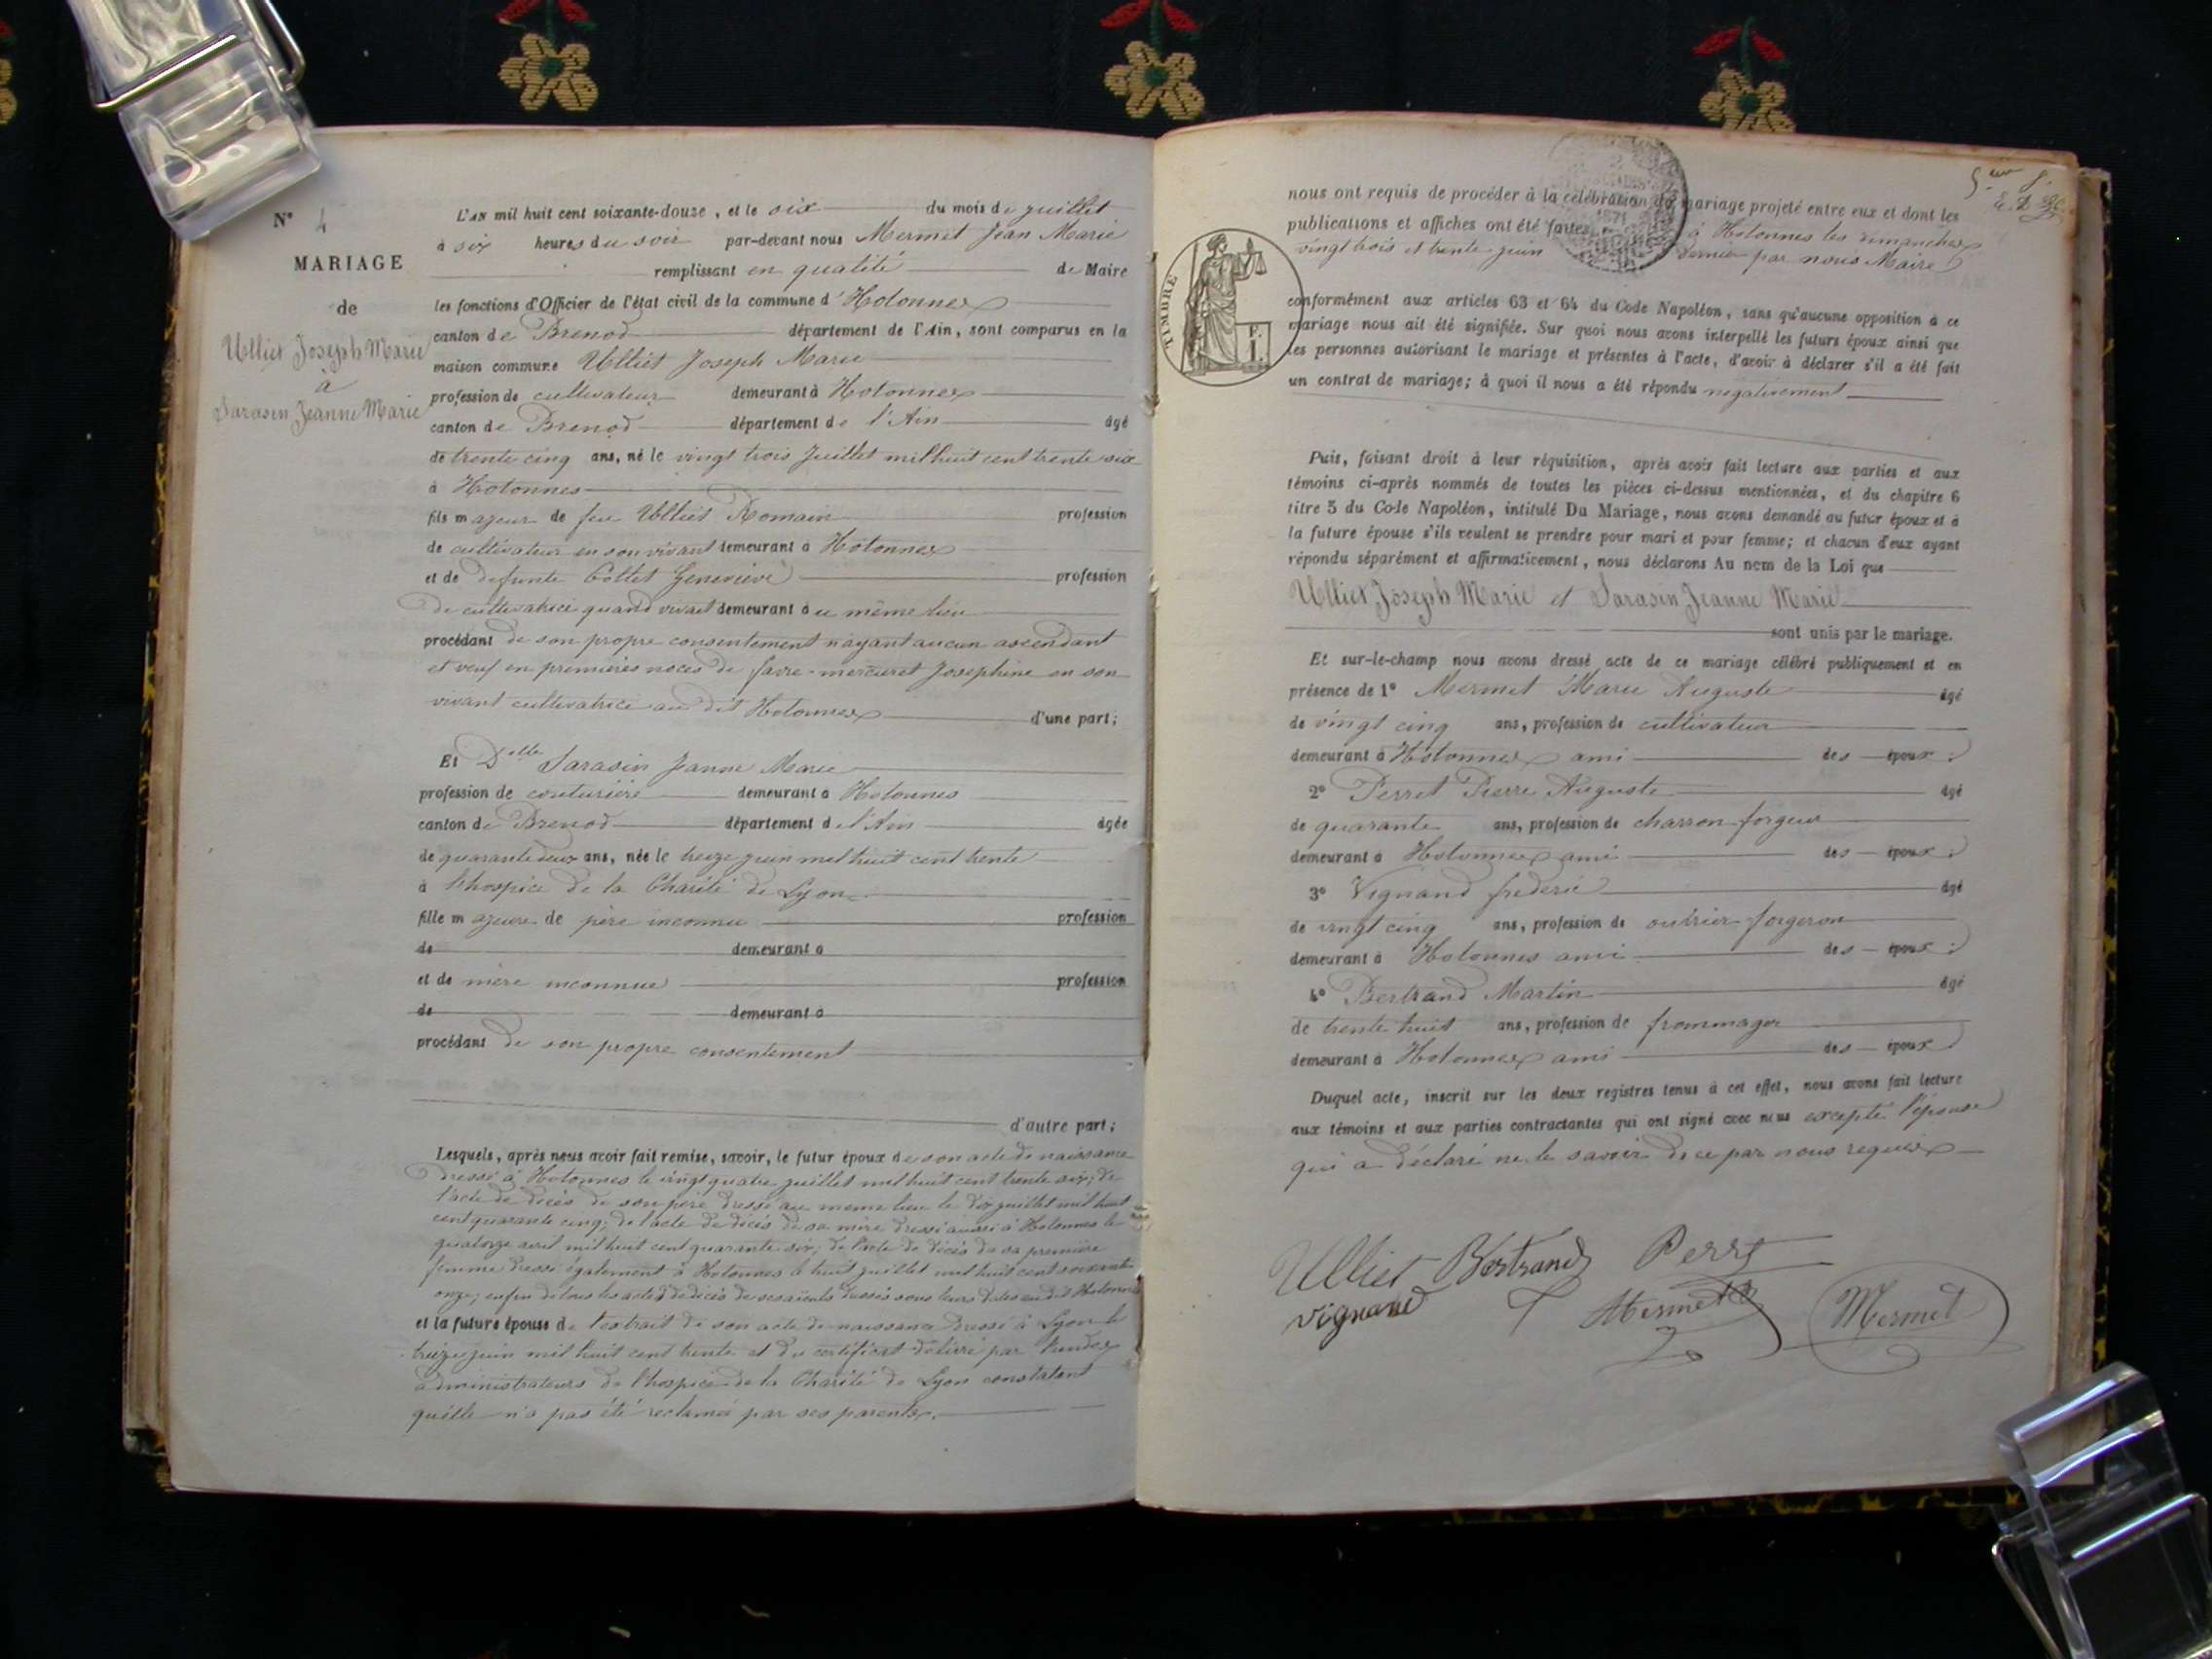 N° 4
MARIAGE
de
Ulliet Joseph Marie
à
Sarasin Jeanne Marie
L'AN mil huit cent soixante-douze, et le six du mois de juillet
à six heures du soir par-devant nous Mermet Jean Marie
remplissant en qualité de Maire
les fonctions d'Officier de l'état civil de la commune d'Hotonnes
canton de Brenod département de l'Ain, sont comparus en la
maison commune Ulliet Joseph Marie
profession de cultivateur demeurant à Hotonnes
canton de Brenod département de l'Ain âgé
de trente cinq ans, né le vingt trois Juillet mil huit cent trente six
à Hotonnes
fils majeur de feu Ulliet Romain profession
de cultivateur en son vivant demeurant à Hotonnes
et de defunte Collet Geneviève profession
de cultivatrice quand vivait demeurant à ce même lieu
procédant de son propre consentement n'ayant aucun ascendant
et veuf en premières noces de favre-mercuret Josephine en son
vivant cultivatrice au dit Hotonnes d'une part;
Et Delle Sarasin Jeanne Marie
profession de couturière demeurant à Hotonnes
canton de Brenod département de l'Ain âgée
de quarante deux ans, née le treize juin mil huit cent trente
à l'hospice de la Charité de Lyon
fille majeure de père inconnu profession
de demeurant à
et de mère inconnue profession
de demeurant à
procédant de son propre consentement
d'autre part;
Lesquels, après nous avoir fait remise, savoir, le futur époux de son acte de naissance
dressé à Hotonnes le vingt quatre juillet mil huit cent trente six; de
l'acte de décès de son père dressé au même lieu le dix juillet mil huit
cent quarante cinq; de l'acte de décès de sa mère dressé aussi à Hotonnes le
quatorze avril mil huit cent quarante six; de l'acte de décès de sa première
femme dressé également à Hotonnes le huit juillet mil huit cent soixante
onze; enfin de tous les actes de décès de ses aïeuls dressés sous leurs dates au dit Hotonnes
et la future épouse de l'extrait de son acte de naissance dressé à Lyon le
treize juin mil huit cent trente et du certificat délivré par l'un des
administrateurs de l'hospice de la Charité de Lyon constatant
qu'elle n'a pas été réclamée par ses parents.
nous ont requis de procéder à la célébration du mariage projeté entre eux et dont les
publications et affiches ont été faites à Hotonnes les dimanches
vingt trois et trente juin dernier par nous Maire
1871
TIMBRE
conformément aux articles 63 et 64 du Code Napoléon, sans qu'aucune opposition à ce
mariage nous ait été signifiée. Sur quoi nous avons interpellé les futurs époux ainsi que
les personnes autorisant le mariage et présentes à l'acte, d'avoir à déclarer s'il a été fait
un contrat de mariage; à quoi il nous a été répondu négativement
Puis, faisant droit à leur réquisition, après avoir fait lecture aux parties et aux
témoins ci-après nommés de toutes les pièces ci-dessus mentionnées, et du chapitre 6
titre 5 du Code Napoléon, intitulé Du Mariage, nous avons demandé au futur époux et à
la future épouse s'ils veulent se prendre pour mari et pour femme; et chacun d'eux ayant
répondu séparément et affirmativement, nous déclarons Au nom de la Loi que
Ulliet Joseph Marie et Sarasin Jeanne Marie
sont unis par le mariage.
Et sur-le-champ nous avons dressé acte de ce mariage célébré publiquement et en
présence de 1° Mermet Marie Auguste âgé
de vingt cinq ans, profession de cultivateur
demeurant à Hotonnes ami des époux;
2° Perret Pierre Auguste âgé
de quarante ans, profession de charron-forgeur
demeurant à Hotonnes ami des époux;
3° Vignand frederic âgé
de vingt cinq ans, profession de ouvrier forgeron
demeurant à Hotonnes ami des époux;
4° Bertrand Martin âgé
de trente huit ans, profession de frommager
demeurant à Hotonnes ami des époux
Duquel acte, inscrit sur les deux registres tenus à cet effet, nous avons fait lecture
aux témoins et aux parties contractantes qui ont signé avec nous excepté l'épouse
qui a déclaré ne le savoir de ce par nous requis
Ulliet Bertrand Perret
Vignand Mermet Mermet